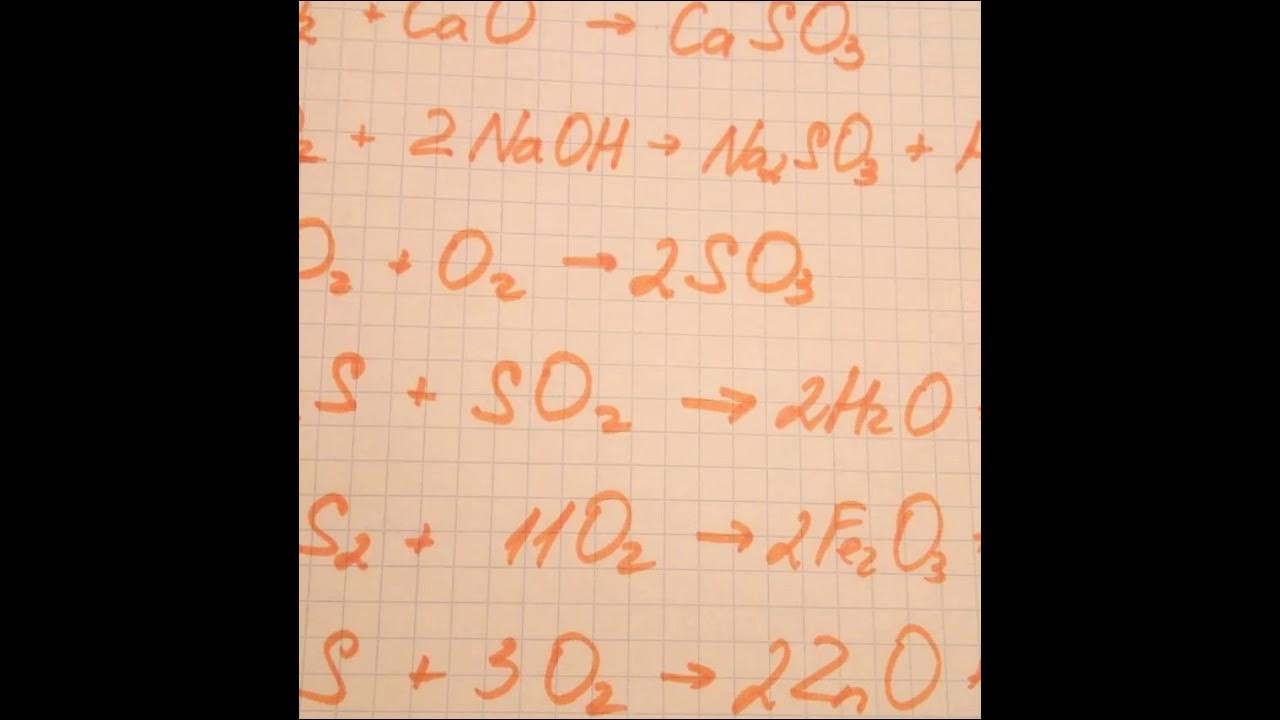 ₂ + CaO → CaSO₃
₂ + 2NaOH → Na₂SO₃ +
O₂ + O₂ → 2SO₃
S + SO₂ → 2H₂O
S₂ + 11O₂ → 2Fe₂O₃
S + 3O₂ → 2ZnO